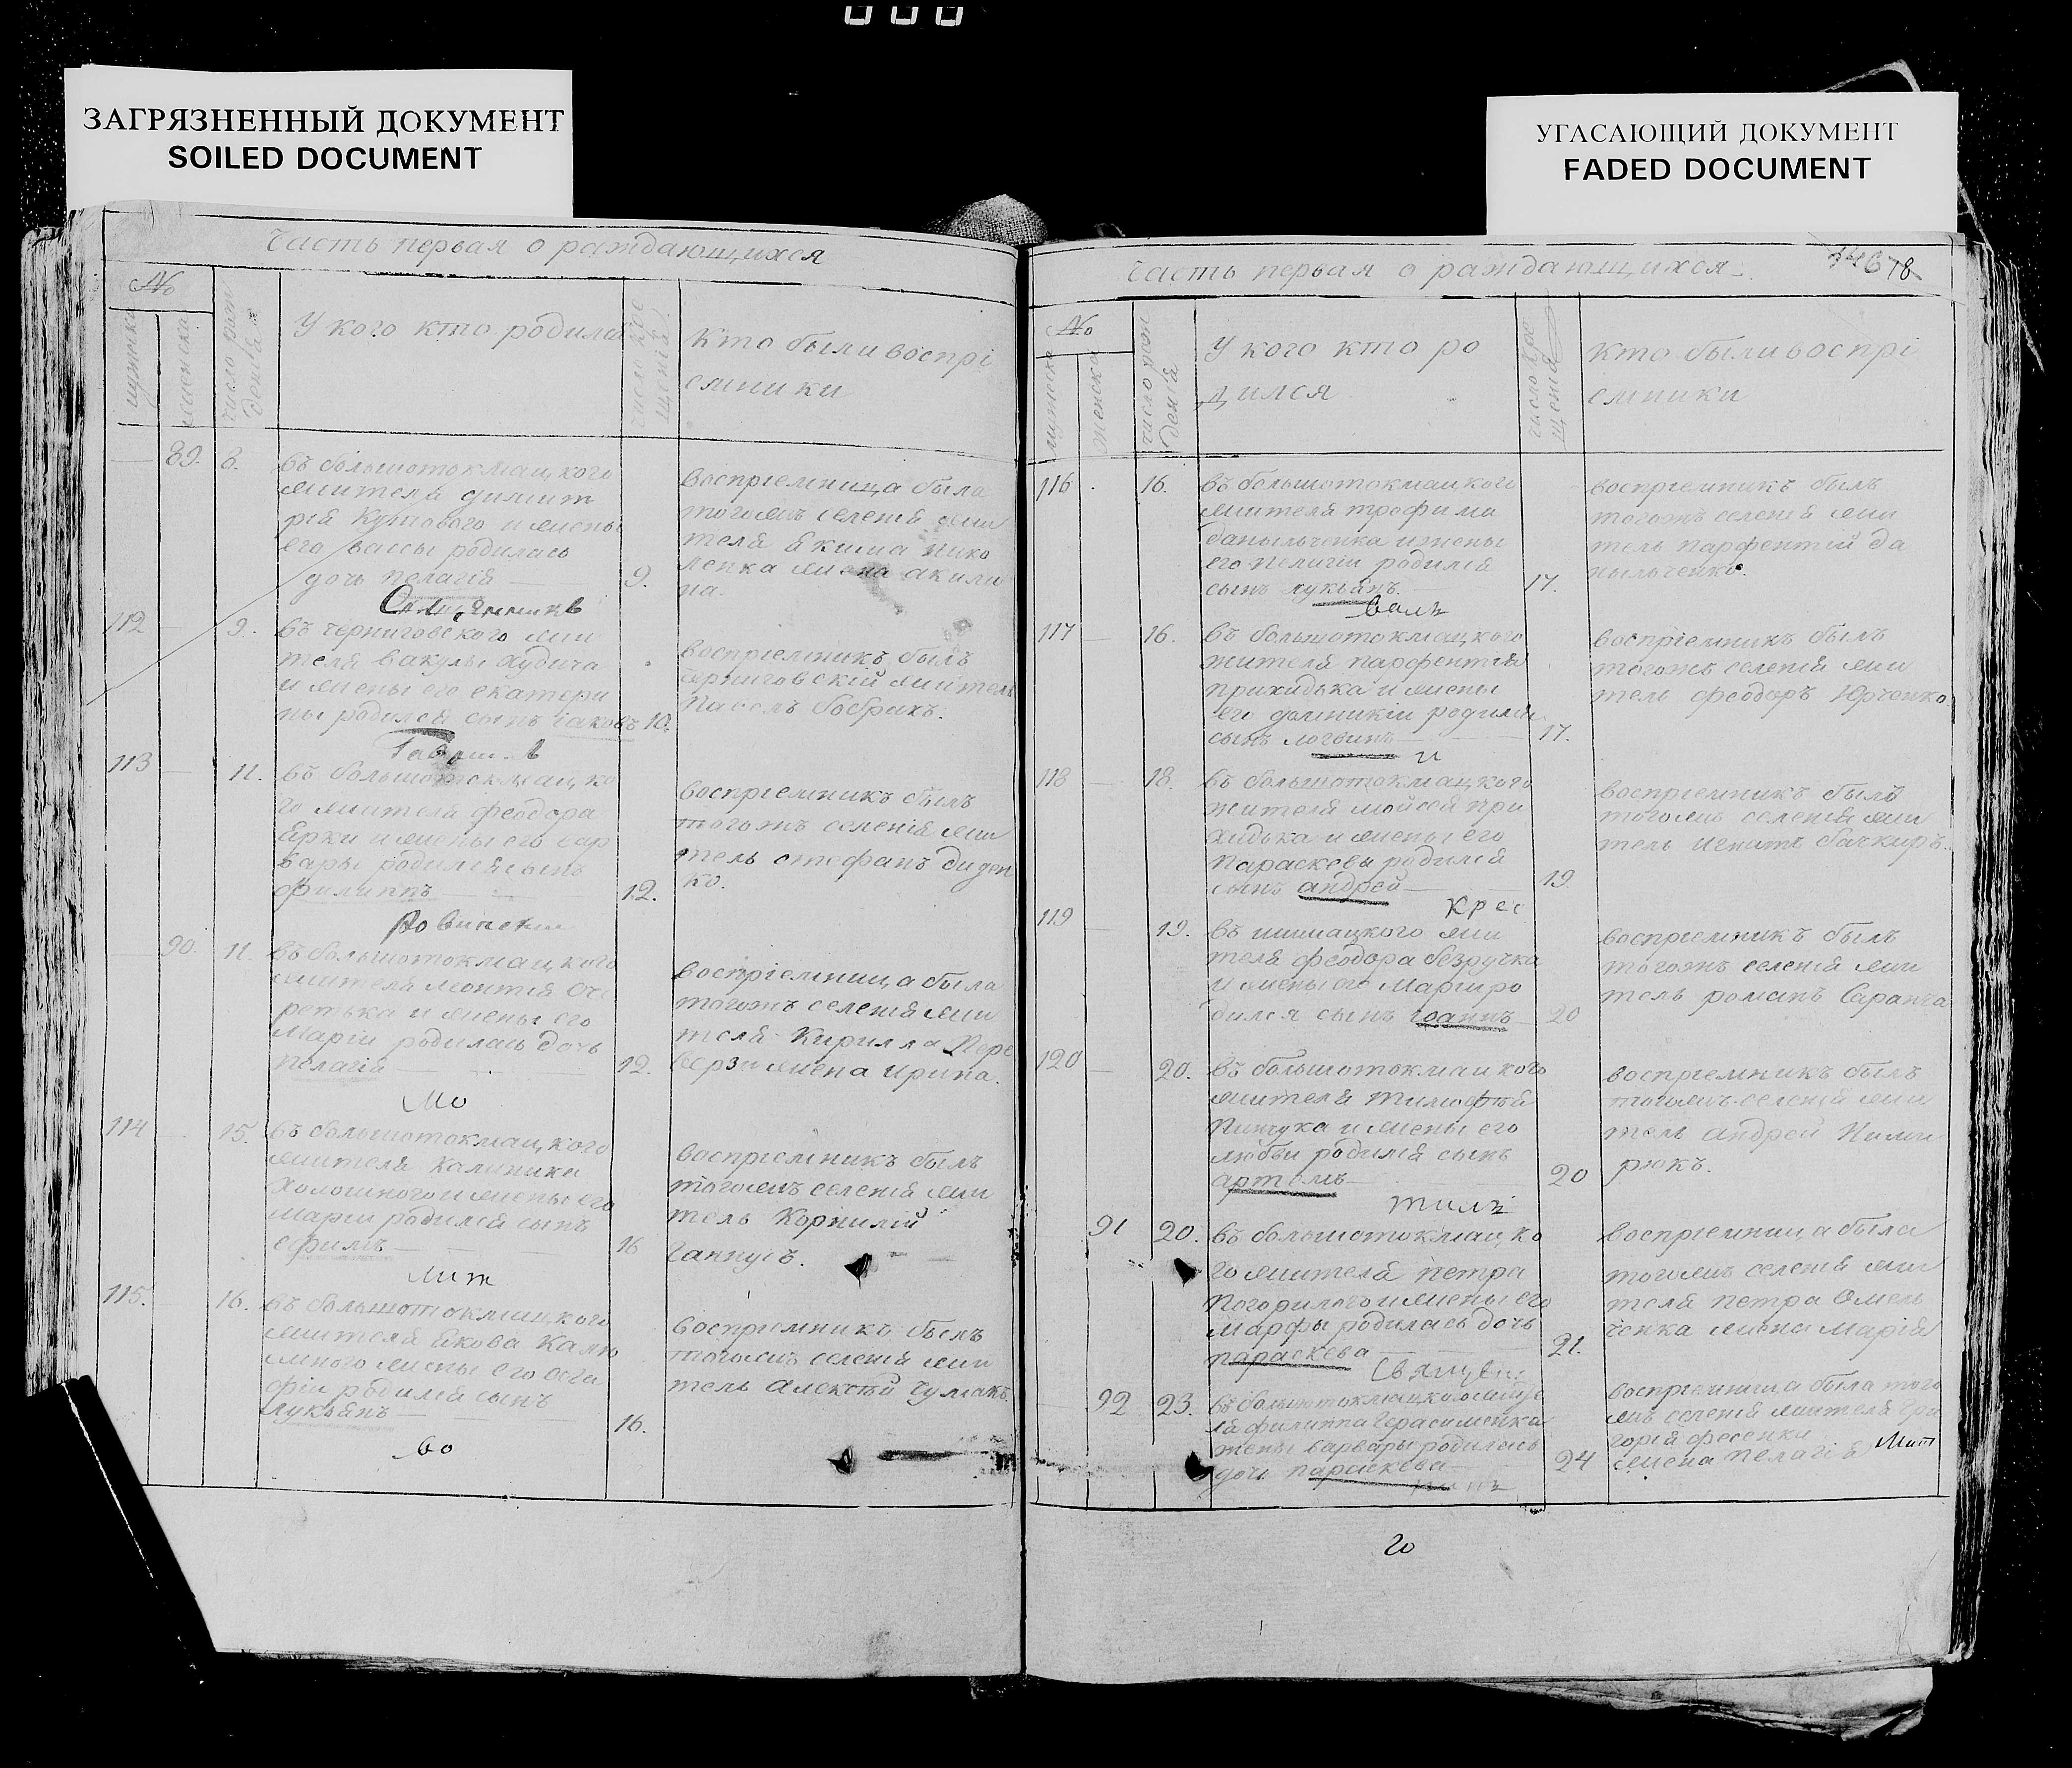 ЗАГРЯЗНЕННЫЙ ДОКУМЕНТ
SOILED DOCUMENT
УГАСАЮЩИЙ ДОКУМЕНТ
FADED DOCUMENT
Часть первая о раждающихся
№
У кого кто родился
Кто были воспрі
емники
89. 8.
въ большотокмацкого
жителя димит
рія Кутового и жены
его вассы родилась
дочь пелагія
9.
воспріемница была
тогожъ селенія жи
теля Якима нико
ленка жена акили
на.
112 9.
въ черниговского жи
теля вакулы худича
и жены его екатери
ны родился сынъ іаковъ 10.
воспріемникъ былъ
черниговскій житель
Павелъ бобрикъ.
113 11.
въ большотокмацко
го жителя феодора
Ярки и жены его вар
вары родился сынъ
филиппъ
12.
воспріемникъ былъ
тогожъ селенія жи
тель стефанъ диден
ко.
90. 11.
въ большотокмацкого
жителя монтія Оче
ретька и жены его
Маріи родилась дочь
пелагія
12.
воспріемница была
тогожъ селенія жи
теля Кирилла Пере
верзи жена ирина.
мо
114 15.
въ большотокмацкого
жителя калиника
холошного и жены его
маріи родился сынъ
ефимъ
16
воспріемникъ былъ
тогожъ селенія жи
тель Корнилій
Ганнусъ.
лит
115. 16.
въ большотокмацкого
жителя Якова Калю
жного жены его ага
фіи родился сынъ
лукьянъ
16.
воспріемникъ былъ
тогожъ селенія жи
тель алексѣй Чумакъ.
во
Часть первая о раждающихся
346 78
№
У кого кто ро
дился
Кто были воспрі
емники
116 16.
въ большотокмацкого
жителя трофима
данильченка и жены
его пелагіи родился
сынъ лукьянъ.
17.
воспріемникъ былъ
тогожъ селенія жи
тель парфентій да
нильченко.
117 16.
въ большотокмацкого
жителя парфентія
прихидька и жены
его домникіи родился
сынъ логвинъ
17.
воспріемникъ былъ
тогожъ селенія жи
тель феодоръ Юрченко
и
118 18.
въ большотокмацкого
жителя мойсея при
хидька и жены его
Параскевы родился
сынъ андрей
19.
воспріемникъ былъ
тогожъ селенія жи
тель игнатъ бачкиръ.
крес
119 19.
теля феодора безручка
и жены его Марфы ро
дился сынъ іоаннъ
20
воспріемникъ былъ
тогожъ селенія жи
тель романъ Саранча
120 20.
въ большотокмацкого
жителя тимофѣя
Пинчука и жены его
любви родился сынъ
артемъ
20
воспріемникъ былъ
тогожъ селенія жи
тель андрей Ними
рюкъ.
91 20.
въ большотокмацко
го жителя петра
Погорилого и жены его
марфы родилась дочь
параскева
21.
воспріемница была
тогожъ селенія жи
теля петра Омель
ченка жена марія
92 23.
въ большотокмацкого жите
ля филиппа Герасименка
жены варвары родилась
дочь параскева
24
воспріемница была того
жъ селенія жителя гри
горія фесенка
жена пелагія
20